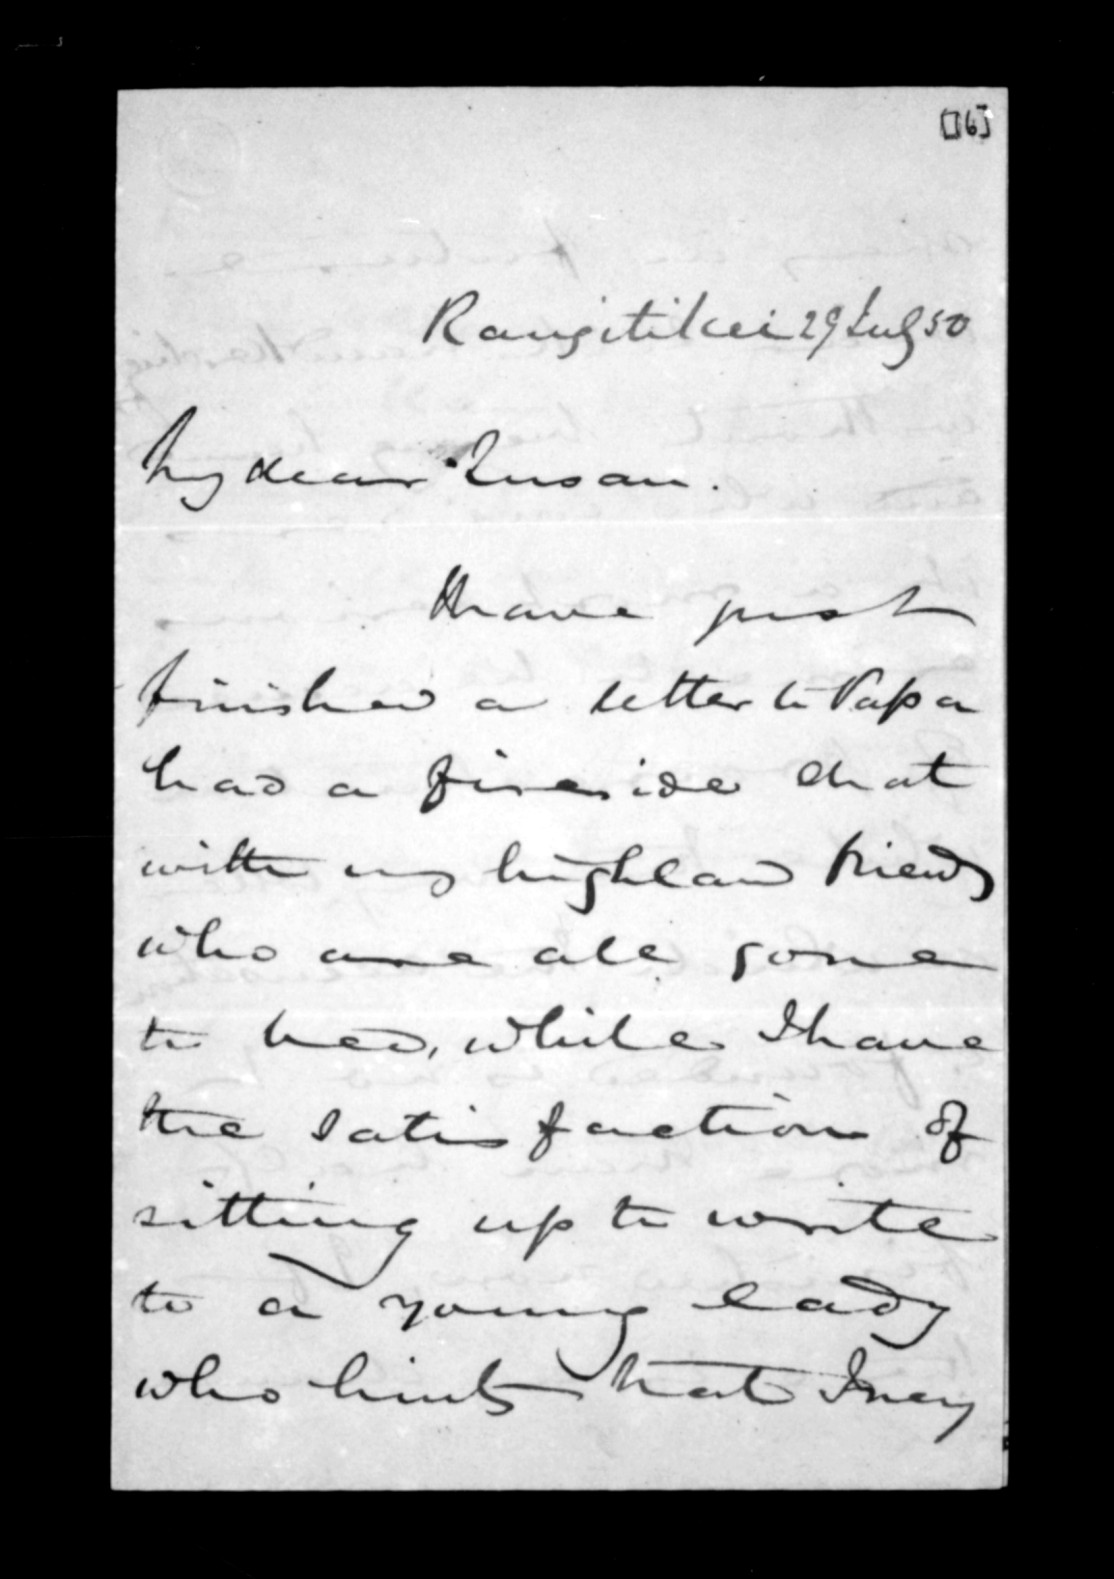 [16]
Rangitikei 29 July 50
My dear Susan.
I have just
finished a letter to Papa
had a fireside chat
with my highland friends
who are all gone
to bed, while I have
the satisfaction of
sitting up to write
to a young lady
who hints that I may